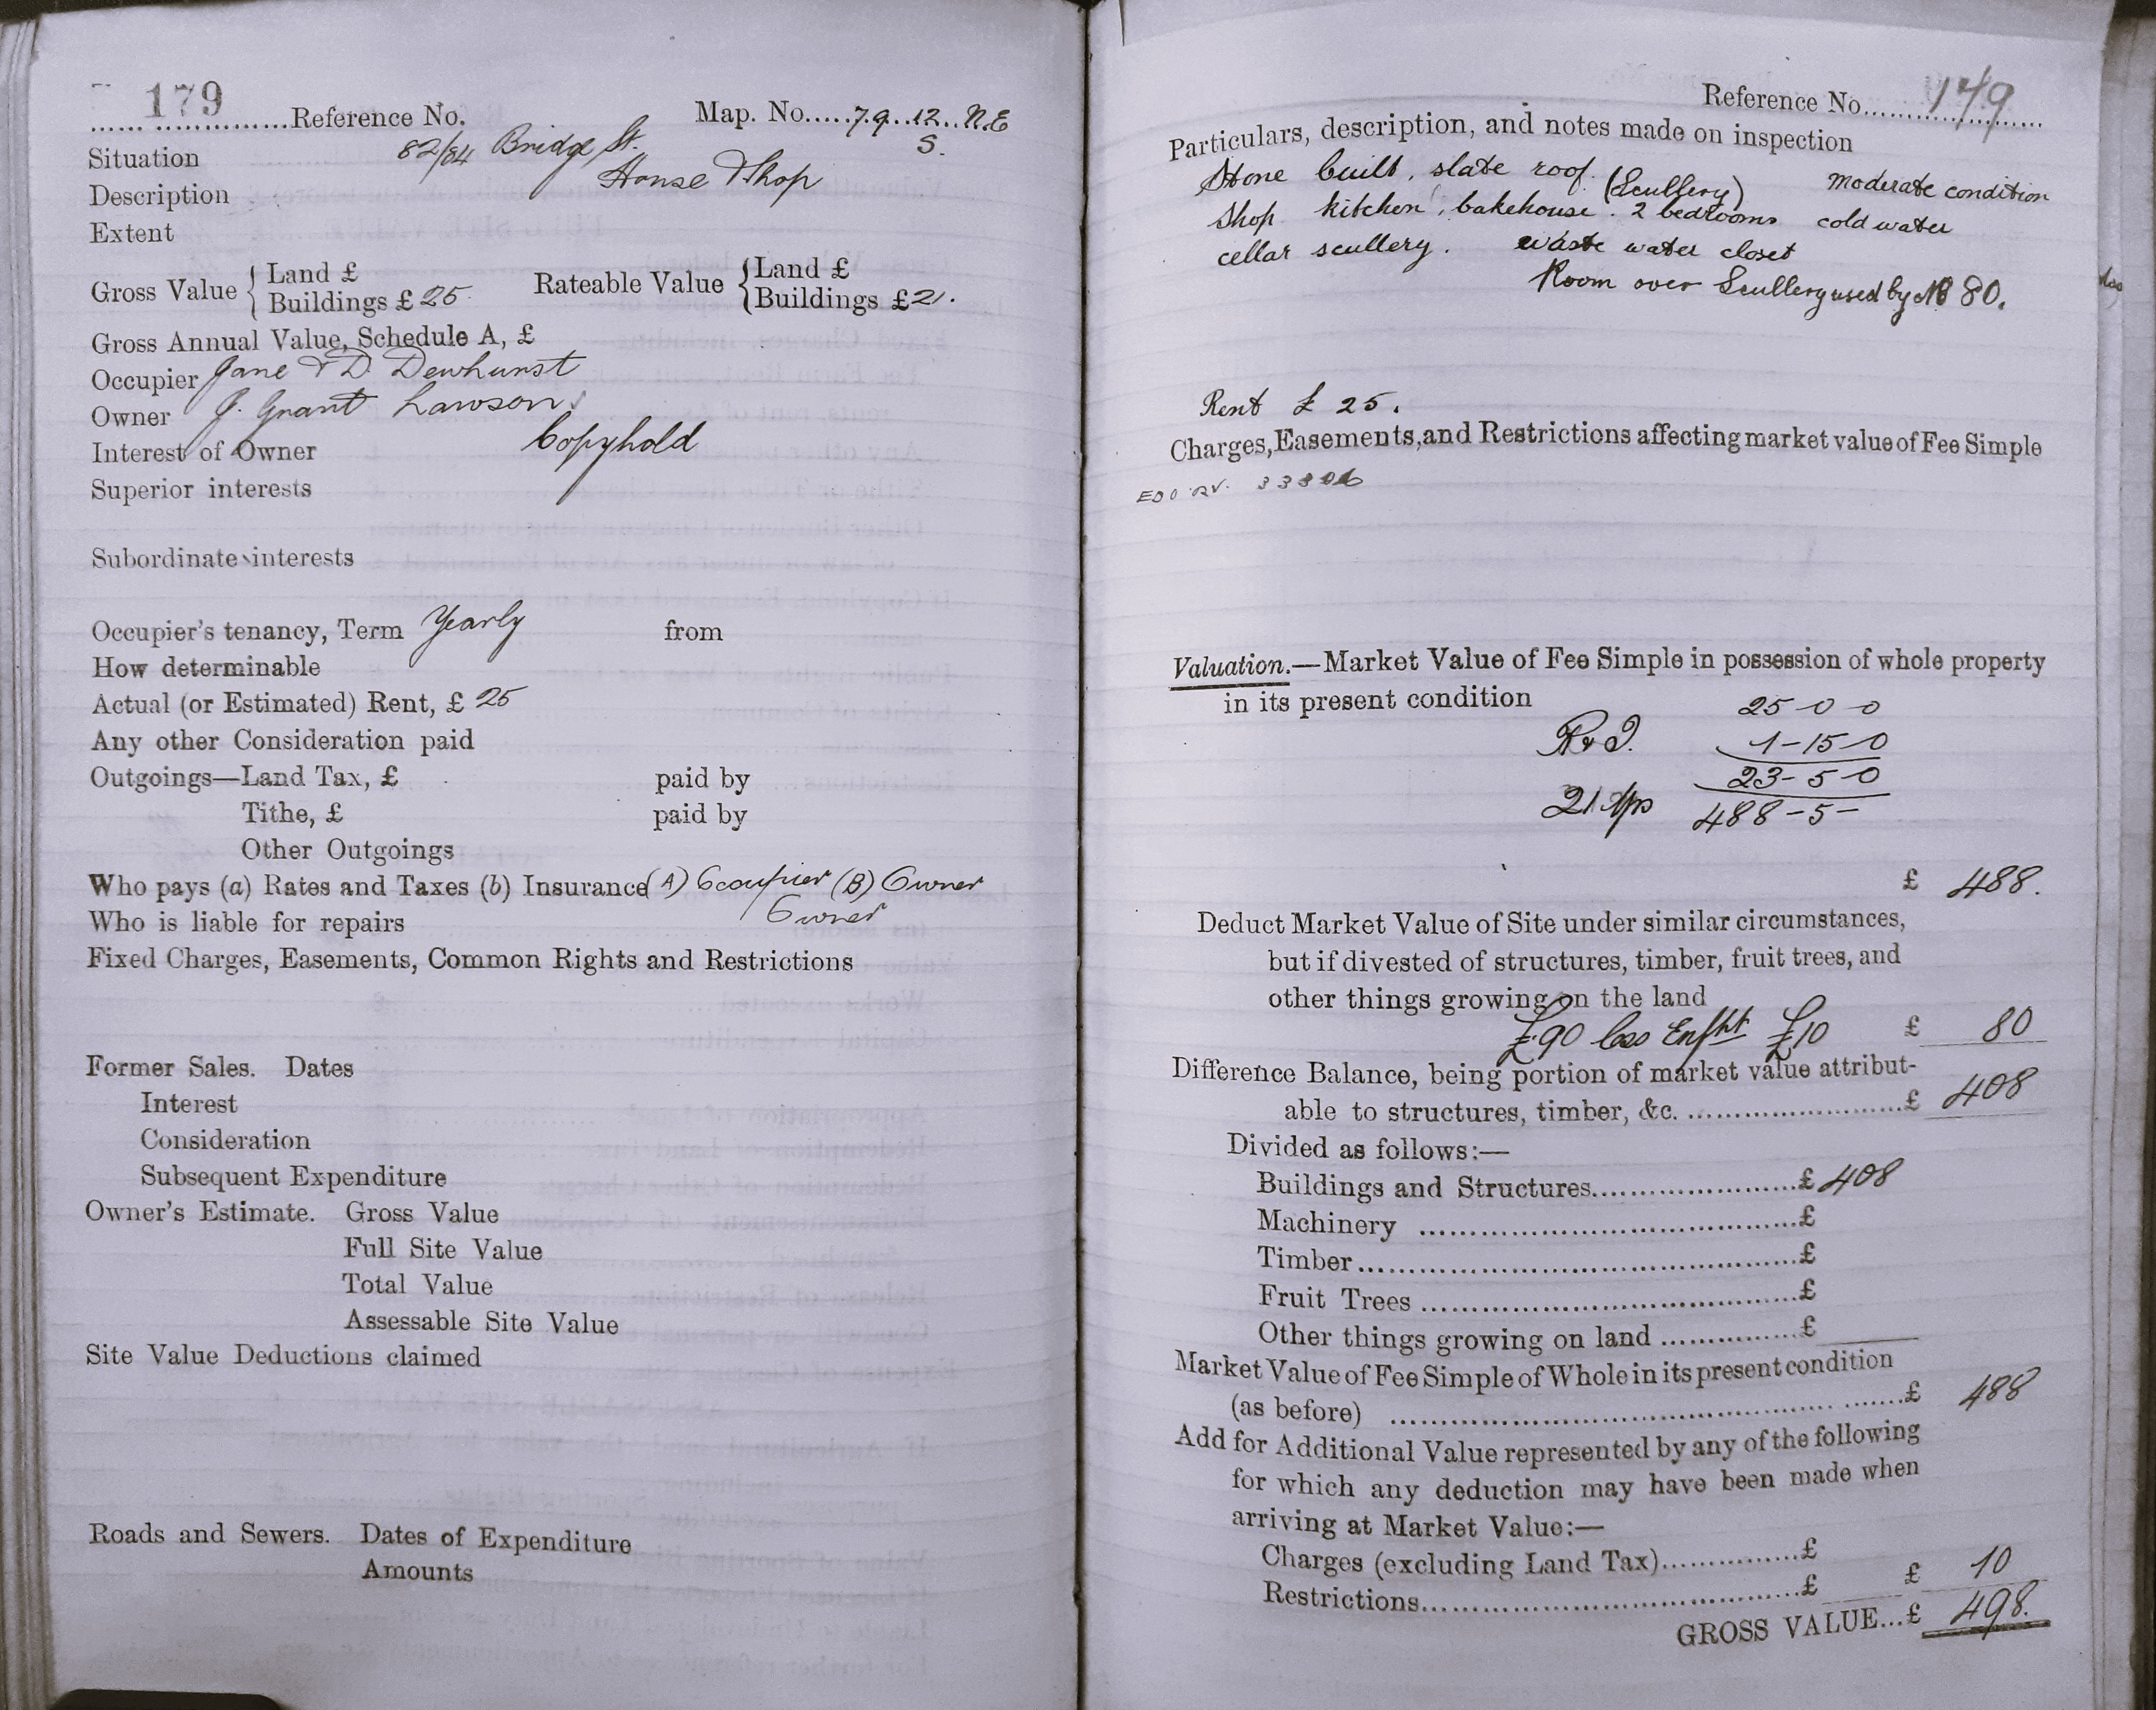 179 Reference No. Map. No. 79. 12. N.E
S.
Situation 82/84 Bridge St.
Description House & Shop
Extent
Gross Value { Land £ Rateable Value { Land £
Buildings £ 25 Buildings £ 21.
Gross Annual Value, Schedule A, £
Occupier Jane & D. Dewhurst
Owner J. Grant Lawson.
Interest of Owner Copyhold
Superior interests
Subordinate interests
Occupier's tenancy, Term Yearly from
How determinable
Actual (or Estimated) Rent, £ 25
Any other Consideration paid
Outgoings—Land Tax, £ paid by
Tithe, £ paid by
Other Outgoings
Who pays (a) Rates and Taxes (b) Insurance (A) Occupier (B) Owner
Who is liable for repairs Owner
Fixed Charges, Easements, Common Rights and Restrictions
Former Sales. Dates
Interest
Consideration
Subsequent Expenditure
Owner's Estimate. Gross Value
Full Site Value
Total Value
Assessable Site Value
Site Value Deductions claimed
Roads and Sewers. Dates of Expenditure
Amounts
Reference No. 179
Particulars, description, and notes made on inspection
Stone built, slate roof. (Scullery) Moderate condition
Shop kitchen, bakehouse. 2 bedrooms cold water
cellar scullery. waste water closet
Room over Scullery used by No 80.
Rent £ 25.
Charges, Easements, and Restrictions affecting market value of Fee Simple
Valuation.—Market Value of Fee Simple in possession of whole property
in its present condition
25 - 0 - 0
R & I. 1 - 15 - 0
23 - 5 - 0
21 Yps 488 - 5 -
£ 488.
Deduct Market Value of Site under similar circumstances,
but if divested of structures, timber, fruit trees, and
other things growing on the land
£90 less Enfht £10 £ 80
Difference Balance, being portion of market value attribut-
able to structures, timber, &c. £ 408
Divided as follows:—
Buildings and Structures £ 408
Machinery £
Timber £
Fruit Trees £
Other things growing on land £
Market Value of Fee Simple of Whole in its present condition
(as before) £ 488
Add for Additional Value represented by any of the following
for which any deduction may have been made when
arriving at Market Value:—
Charges (excluding Land Tax) £
Restrictions £ £ 10
GROSS VALUE...£ 498.